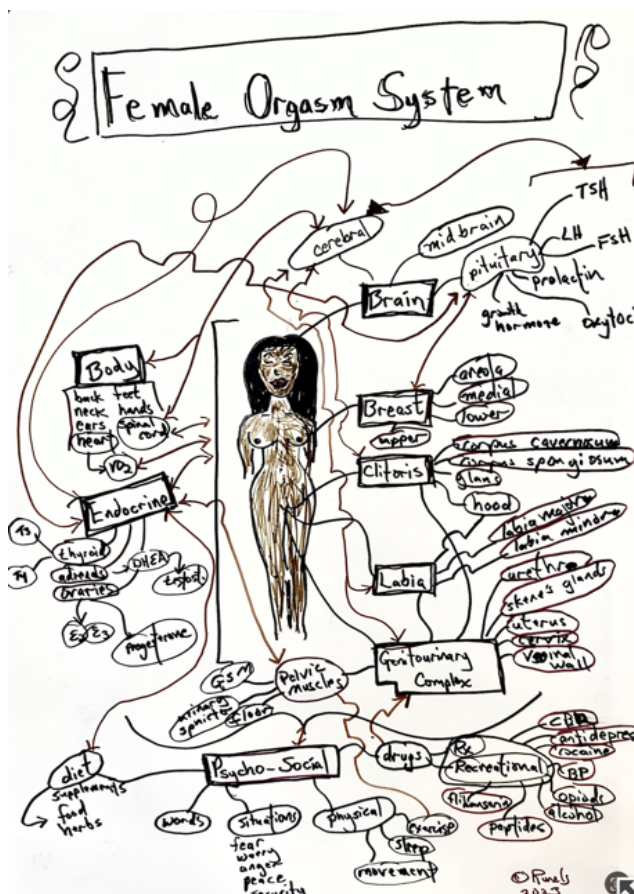 Female Orgasm System
cerebral
mid brain
pituitary
TSH
LH
FSH
prolactin
growth
hormone
oxytoc
Brain
Body
back feet
neck hands
ears spinal
cord
heart
VO2
Breast
areola
medial
lower
upper
Clitoris
corpus cavernosum
corpus spongiosum
glans
hood
Endocrine
T3
T4
thyroid
adrenals
ovaries
DHEA
testost.
E2 E3
progesterone
Labia
labia majora
labia minora
urethra
skene's glands
uterus
cervix
vaginal
wall
Genitourinary
Complex
GSM
Pelvic
muscles
urinary
sphincter
floor
Psycho-Social
diet
supplements
food
herbs
words
situations
fear
worry
anger
peace
security
physical
exercise
sleep
movement
drugs
Rx
Recreational
antidepres
cocaine
BP
opiods
alcohol
flibanserin
peptides
© Runels
2023